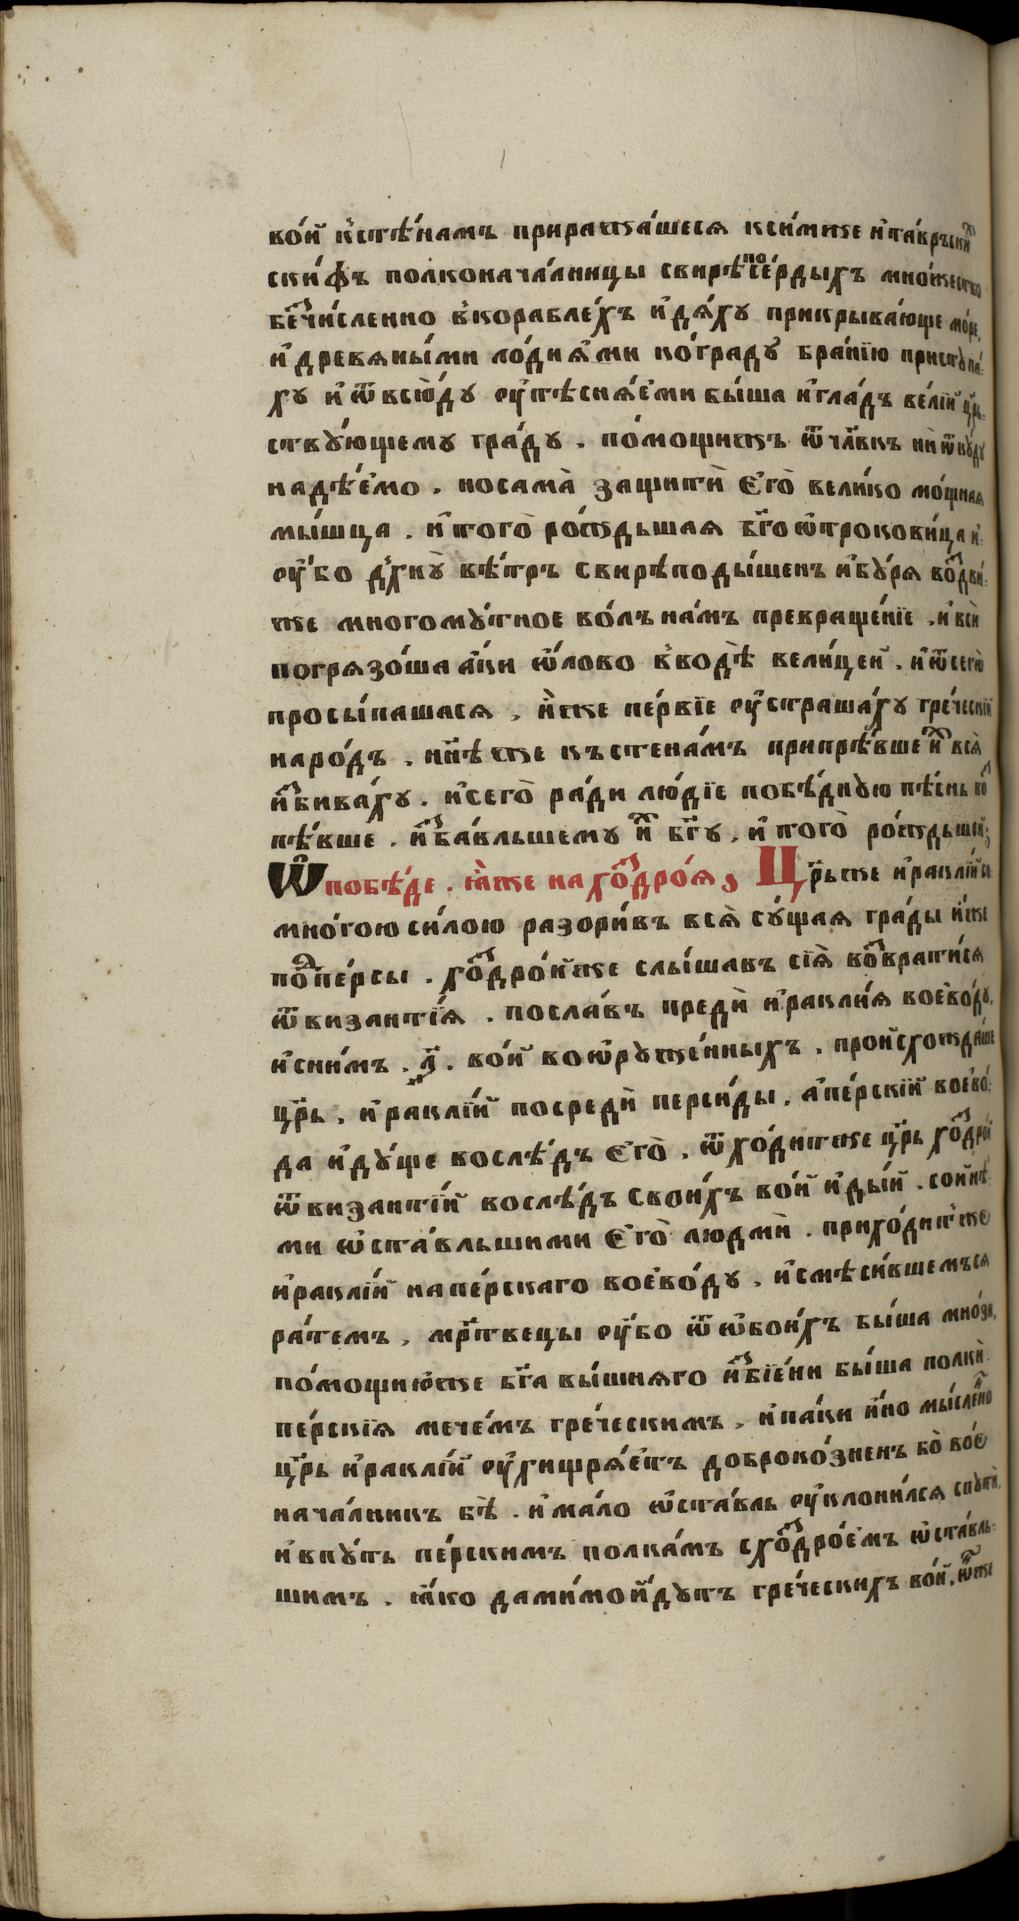 во́й къ̀стѣ́намъ приража́шеся ксі́мже и҆та́врьски́хъ
ски́ѳъ полконача́лницы свирѣпосе́рдыхъ мно́жество
бе́счисленно в̾корабле́хъ и҆дя́ху прикрыва́юще мо́ре,
и҆древяны́ми ло́дия́ми ко́граду̀ бра́нїю приступа́-
ху и҆ѿвсю́ду оу҆тѣсня́е́ми бы́ша и҆гла́дъ ве́лїй цр҃-
ству́ющему гра́ду. по́мощижъ ѿчл҃вкъ ниѿкꙋ́ду
надѣ́емо. носама̀ защити̑ є҆го̀ вели́ко мо́щная
мы́шца. и҆того̀ ро́ждьшая бг҃о ѻ҆трокови́ца и҆-
оу҆́бо дх҃ну̀ вѣ́тръ свирѣподы́шенъ и҆бу́ря во́здви-
же многому́тное во́лънамъ превраще́нїе. и҆вси̑
погрязо́ша а҆́ки ѻ҆́лово в̾водѣ̀ вели́цей. и҆ѿсего̀
просы́пашася, и҆́же пе́рвїе оу҆страша́ху гре́ческїй
наро́дъ. нн҃ѣже къстена́мъ припрѣ́вше и҆́хъ вся̀
и҆збива́ху. и҆сего̀ ра́ди лю́дїе побѣ́дную пѣ́снь во́с
пѣ́вше. и҆зба́вльшему и҆́хъ бг҃у, и҆того̀ ро́ждьшей;
Ѿпобѣ́де. ꙗ҆́же нахо́здро́я, Цр҃ьже и҆ракли́й со
мно́гою си́лою разори́въ вся̀ су́щая гра́ды и҆́же
подпе́рсы. хо́здро́йже слы́шавъ сїя̀ во́звратися
ѿвизанти́я. посла́въ преди̑ и҆ракли́я воево́ду,
и҆сни́мъ. л҃. во́й воѻ҆руже́нныхъ. про́исхожда́ше
цр҃ь, и҆ракли́й посреди̑ перси́ды. а҆пе́рскїй воево́-
да и҆ду́ще вослѣ́дъ є҆го̀. ѿхо́дитже цр҃ь хо́здрой
ѿвизанти́й вослѣ́дъ свои́хъ во́й и҆ды́й. соинѣ
ми ѡ҆ста́вльшими є҆го̀ людми̑. прихо́дитже
и҆ракли́й напе́рскаго воево́ду, и҆смѣси́вшемъся
ра́темъ, мр҃твецы оу҆́бо ѿѻ҆бои́хъ бы́ша мно́зи,
по́мощиюже бг҃а вы́шняго и҆збїе́ни бы́ша полки̑
пе́рскїя мече́мъ гре́ческимъ, и҆па́ки и҆́но мы́сленно
цр҃ь и҆ракли́й оу҆хищря́етъ доброко́зненъ бо̀ вое
нача́лникъ бѣ̀. и҆ма́ло ѡ҆ста́вль оу҆клони́лся спути̑,
и҆впу́ть пе́рскимъ полка́мъ схо́здрое́мъ ѡ҆ста́вль-
шимъ. ꙗ҆́ко дами́мо и҆́дутъ гре́ческихъ во́й. ѻ҆ниже